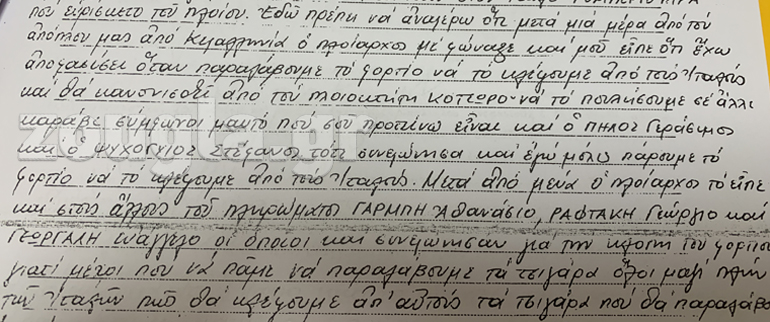 που ευρίσκετο του πλοίου. Εδώ πρέπη να αναφέρω ότι μετά μιά μέρα από τον
απόπλου μας από Κεφαλληνία ο πλοίαρχος με φώναξε και μου είπε ότι έχω
αποφασίσει όταν παραλάβουμε το φορτίο να το κλέψουμε από τους Ιταλούς
και θα κανονισθεί από τον πλοιοκτήτη ΚΟΤΣΟΡΟ να το πουλήσουμε σε άλλι
καράβι σύμφωνοι μ'αυτό που σου προτείνω είναι και ο ΠΗΛΟΣ Γεράσιμος
και ο ΨΥΧΟΓΥΙΟΣ Στέφανος τότε συνεφώνησα και εγώ μόλις πάρουμε το
φορτίο να το κλέψουμε από τους Ιταλούς. Μετά από μένα ο πλοίαρχος το είπε
και στους άλλους του πληρώματος ΓΑΡΜΠΗ Αθανάσιο, ΡΑΦΤΑΚΗ Γεώργιο και
ΓΕΩΡΓΑΛΗ Βαγγέλο οι οποίοι και συνεφώνησαν για την κλοπή του φορτίου
γιατί μέχρι που να πάμε να παραλάβουμε τα τσιγάρα όλοι μαζί πλήν
των Ιταλών πώς θα κλέψουμε απ'αυτούς τα τσιγάρα που θα παραλάβο
zougla.gr